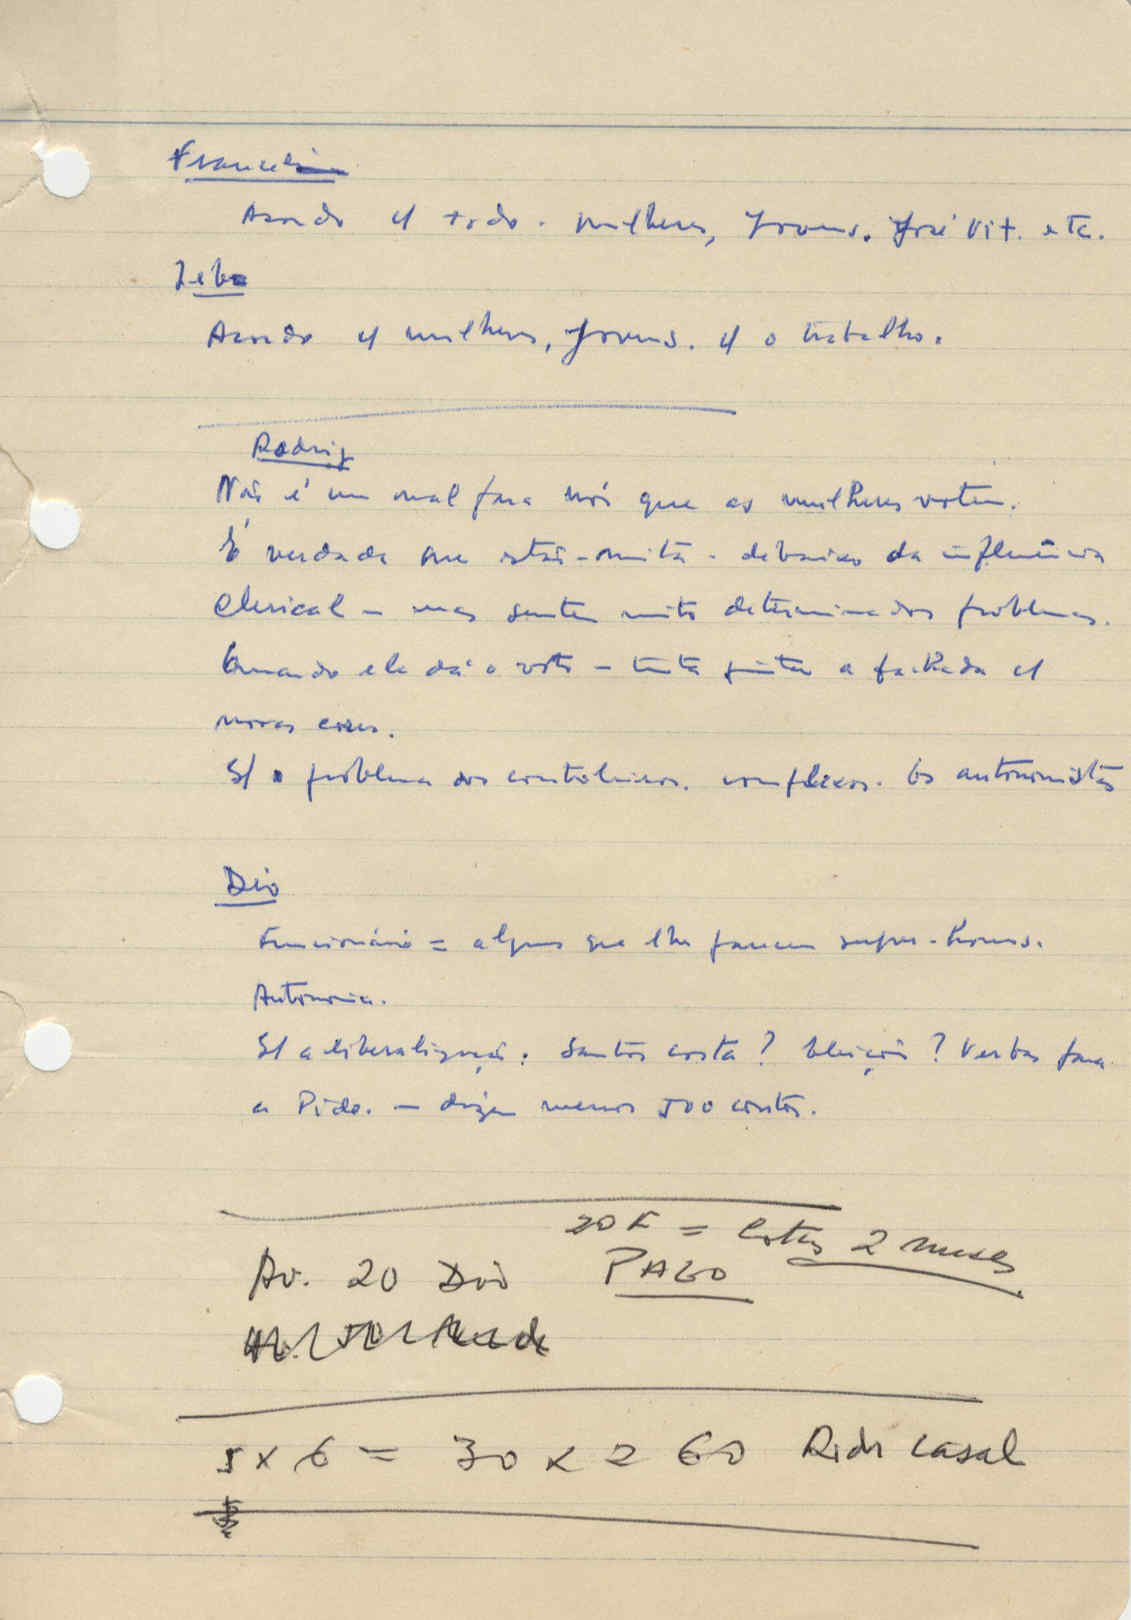 Acordo c/ todo. mulheres, Jovens. José Vit. etc.
Zeb
Acordo c/ mulheres, Jovens. c/ o trabalho.
Rodrig
Não é um mal para nós que as mulheres votem.
É verdade que estão muita debaixo da influência
Clerical – mas sentem muito determinados problemas.
Quando ele dá o voto – tenta pintar a fachada c/
novas cores.
S/ o problema dos católicos. complexos. Os autonomistas
Dio
Funcionário = alguns que lhe parecem super-homens.
Autonomia.
S/ a liberalização. Santos Costa? Eleições? Verbas para
a Pide. – dizem menos 500 contos.
20 F = Cotas 2 meses
Av. 20 Dio PAGO
5 x 6 = 30 x 2 60 casal